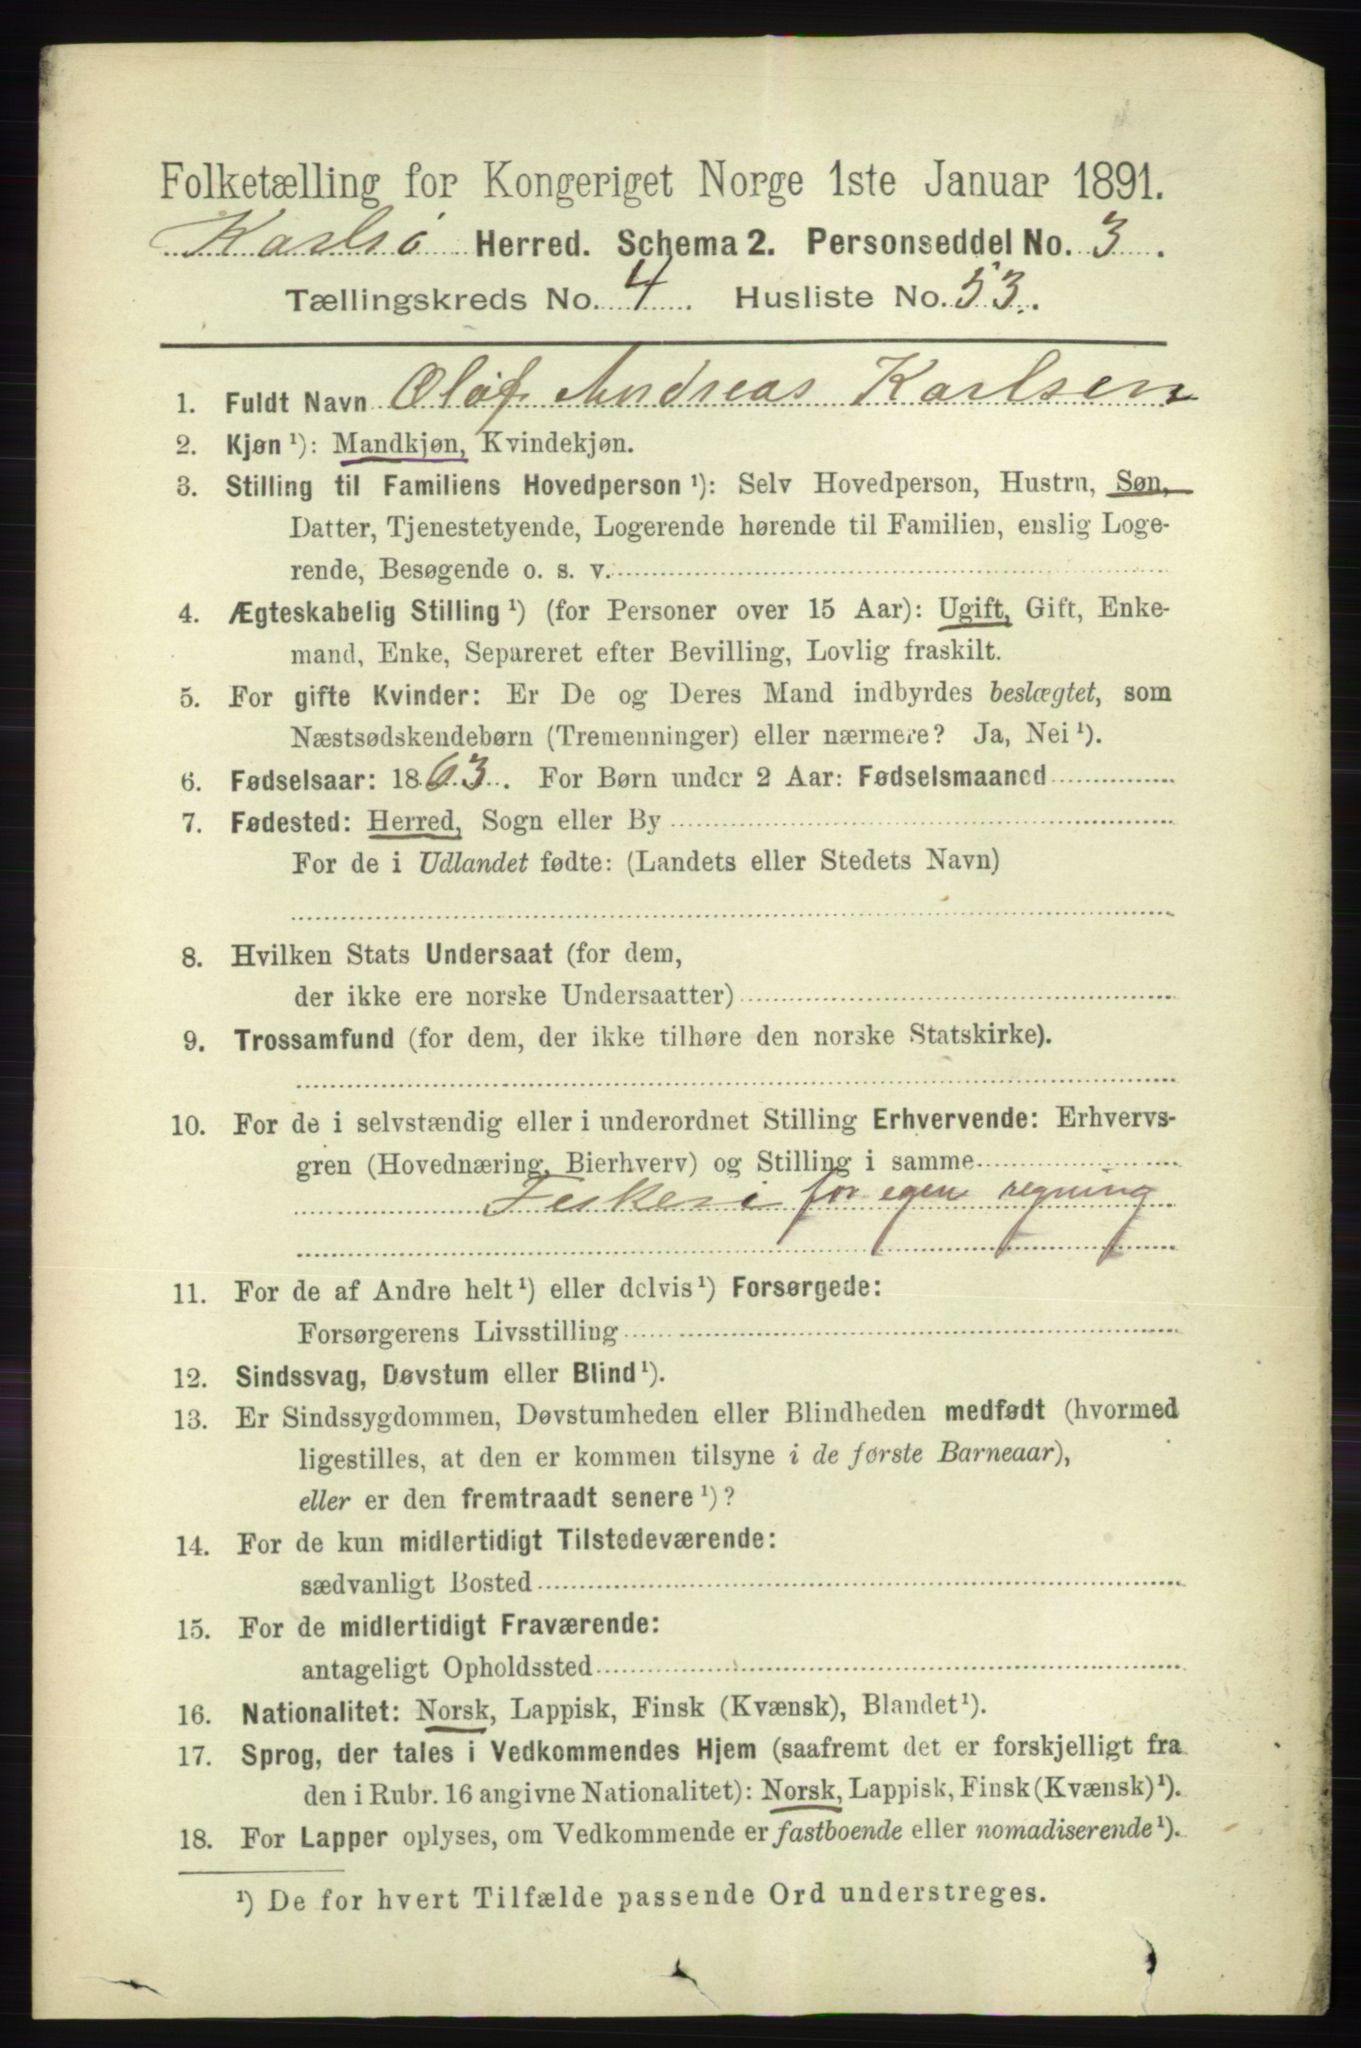 Folketælling for Kongeriget Norge 1ste Januar 1891.
Karlsø Herred. Schema 2. Personseddel No. 3.
Tællingskreds No. 4. Husliste No. 53.
1. Fuldt Navn Olof Andreas Karlsen
2. Kjøn ¹): Mandkjøn, Kvindekjøn.
3. Stilling til Familiens Hovedperson ¹): Selv Hovedperson, Hustru, Søn,
Datter, Tjenestetyende, Logerende hørende til Familien, enslig Loge-
rende, Besøgende o. s. v.
4. Ægteskabelig Stilling ¹) (for Personer over 15 Aar): Ugift, Gift, Enke-
mand, Enke, Separeret efter Bevilling, Lovlig fraskilt.
5. For gifte Kvinder: Er De og Deres Mand indbyrdes beslægtet, som
Næstsødskendebørn (Tremenninger) eller nærmere? Ja, Nei ¹).
6. Fødselsaar: 1863. For Børn under 2 Aar: Fødselsmaaned
7. Fødested: Herred, Sogn eller By
For de i Udlandet fødte: (Landets eller Stedets Navn)
8. Hvilken Stats Undersaat (for dem,
der ikke ere norske Undersaatter)
9. Trossamfund (for dem, der ikke tilhøre den norske Statskirke).
10. For de i selvstændig eller i underordnet Stilling Erhvervende: Erhvervs-
gren (Hovednæring, Bierhverv) og Stilling i samme
Feskeri for egen regning
11. For de af Andre helt ¹) eller delvis ¹) Forsørgede:
Forsørgerens Livsstilling
12. Sindssvag, Døvstum eller Blind ¹).
13. Er Sindssygdommen, Døvstumheden eller Blindheden medfødt (hvormed
ligestilles, at den er kommen tilsyne i de første Barneaar),
eller er den fremtraadt senere ¹)?
14. For de kun midlertidigt Tilstedeværende:
sædvanligt Bosted
15. For de midlertidigt Fraværende:
antageligt Opholdssted
16. Nationalitet: Norsk, Lappisk, Finsk (Kvænsk), Blandet ¹).
17. Sprog, der tales i Vedkommendes Hjem (saafremt det er forskjelligt fra
den i Rubr. 16 angivne Nationalitet): Norsk, Lappisk, Finsk (Kvænsk) ¹).
18. For Lapper oplyses, om Vedkommende er fastboende eller nomadiserende ¹).
¹) De for hvert Tilfælde passende Ord understreges.